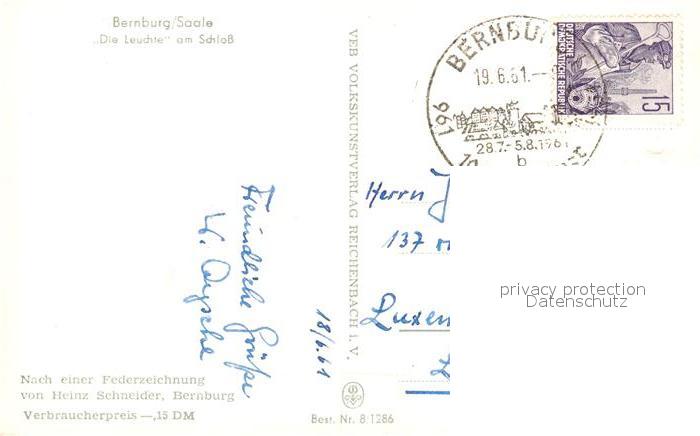 Bernburg/Saale
„Die Leuchte" am Schloß
BERNBU
19.6.61.--
961
28.7.-5.8.1961
b
DEUTSCHE
DEMOKRATISCHE REPUBLIK
15
VEB VOLKSKUNSTVERLAG REICHENBACH i. V.
Herrn J
137
Luxem
privacy protection
Datenschutz
Freundliche Grüße
W.
18/6.61
Nach einer Federzeichnung
von Heinz Schneider, Bernburg
Verbraucherpreis —,15 DM
Best. Nr. 8/1286